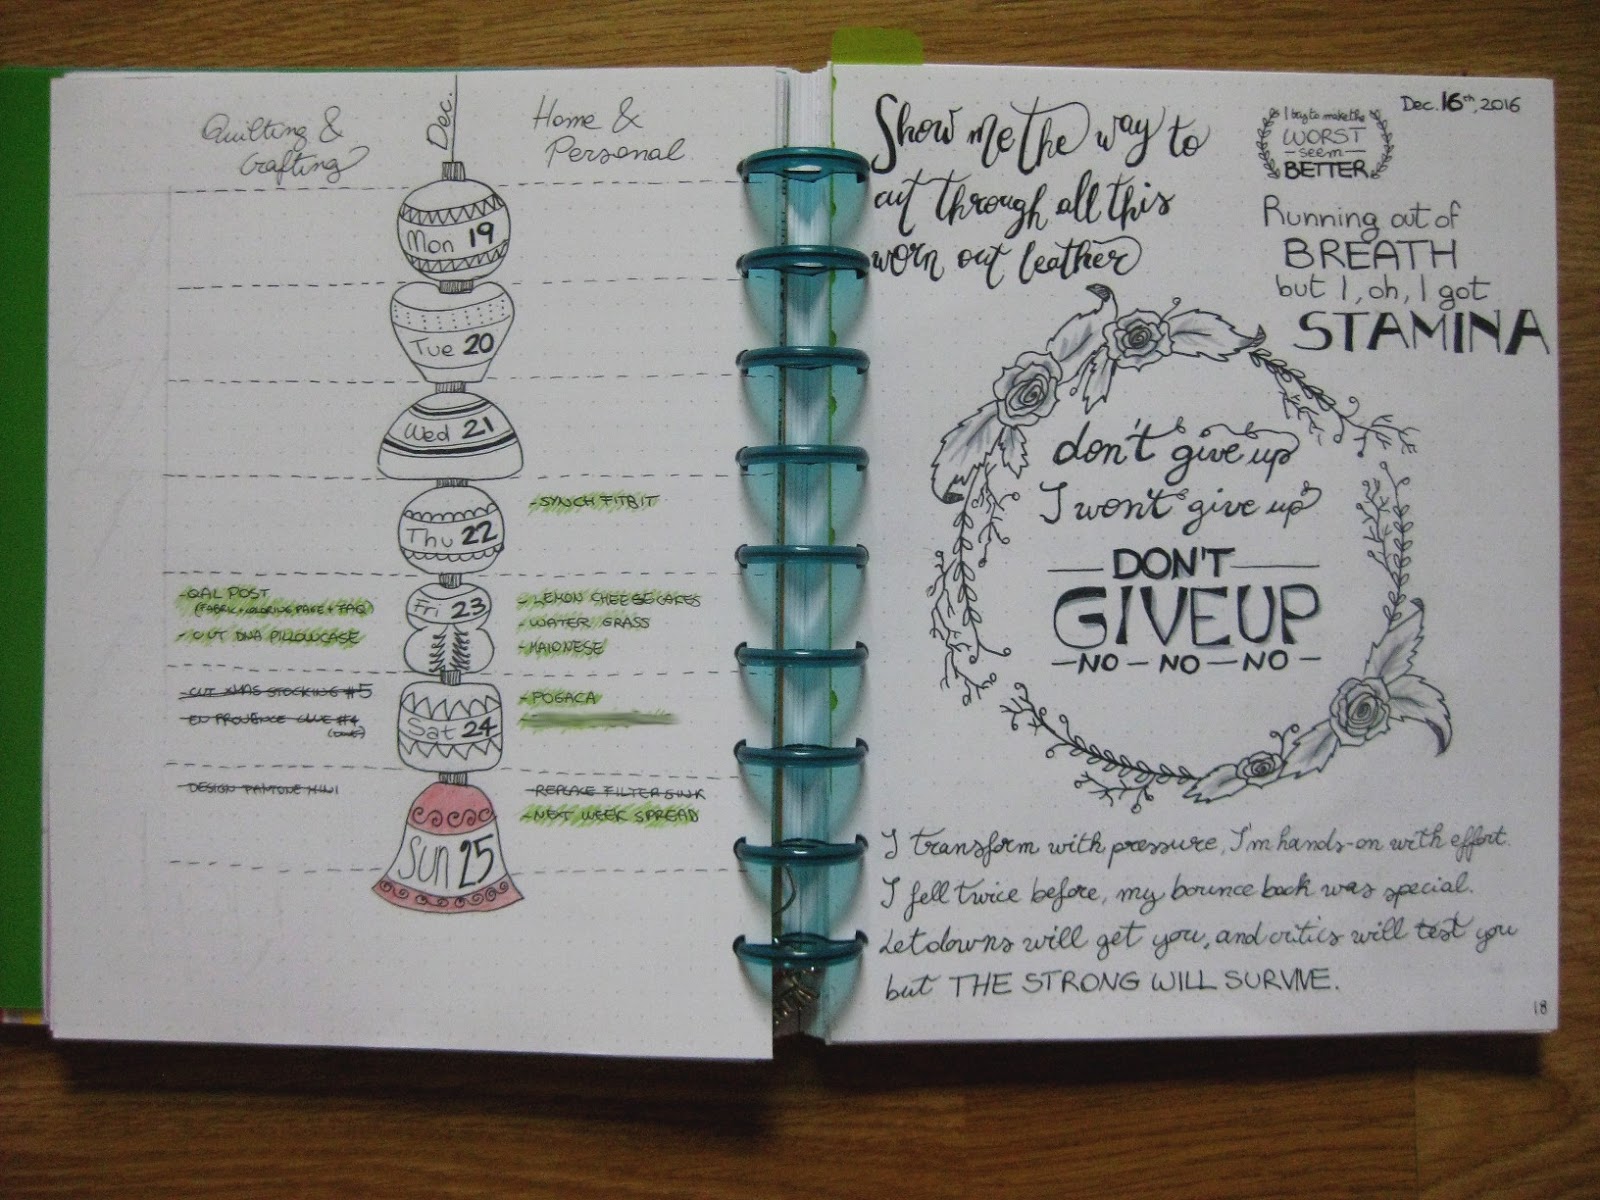 Quilting &
Crafting
Dec.
Home &
Personal
Mon 19
Tue 20
Wed 21
Thu 22
- SYNCH FITBIT
- QAL POST
(FABRIC + COLORING PAGE + FAQ)
- CUT DNA PILLOWCASE
Fri 23
- LEMON CHEESECAKES
- WATER GRASS
- MAIONESE
- CUT XMAS STOCKING #5
- EN PROVENCE CLUE #4
Sat 24
- POGACA
- DESIGN PANTONE MINI
Sun 25
- REPLACE FILTER SINK
- NEXT WEEK SPREAD
Show me the way to
cut through all this
worn out leather
Dec. 16th, 2016
I try to make the
WORST
- seem -
BETTER
Running out of
BREATH
but I, oh, I got
STAMINA
don't give up
I won't give up
DON'T
GIVE UP
- NO - NO - NO -
I transform with pressure, I'm hands-on with effort.
I fell twice before, my bounce back was special.
Letdowns will get you, and critics will test you
but THE STRONG WILL SURVIVE.
18